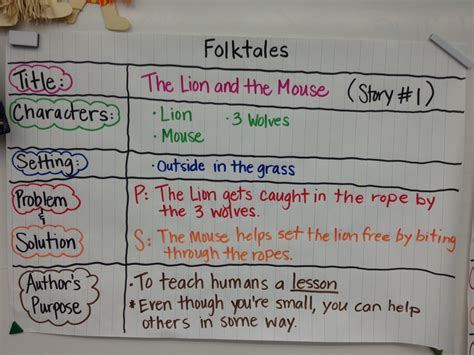 Folktales
Title: The Lion and the Mouse (Story #1)
Characters: · Lion · 3 Wolves
· Mouse
Setting: · Outside in the grass
Problem & Solution
P: The Lion gets caught in the rope by
the 3 wolves.
S: The Mouse helps set the lion free by biting
through the ropes.
Author's Purpose
· To teach humans a lesson
* Even though you're small, you can help
others in some way.